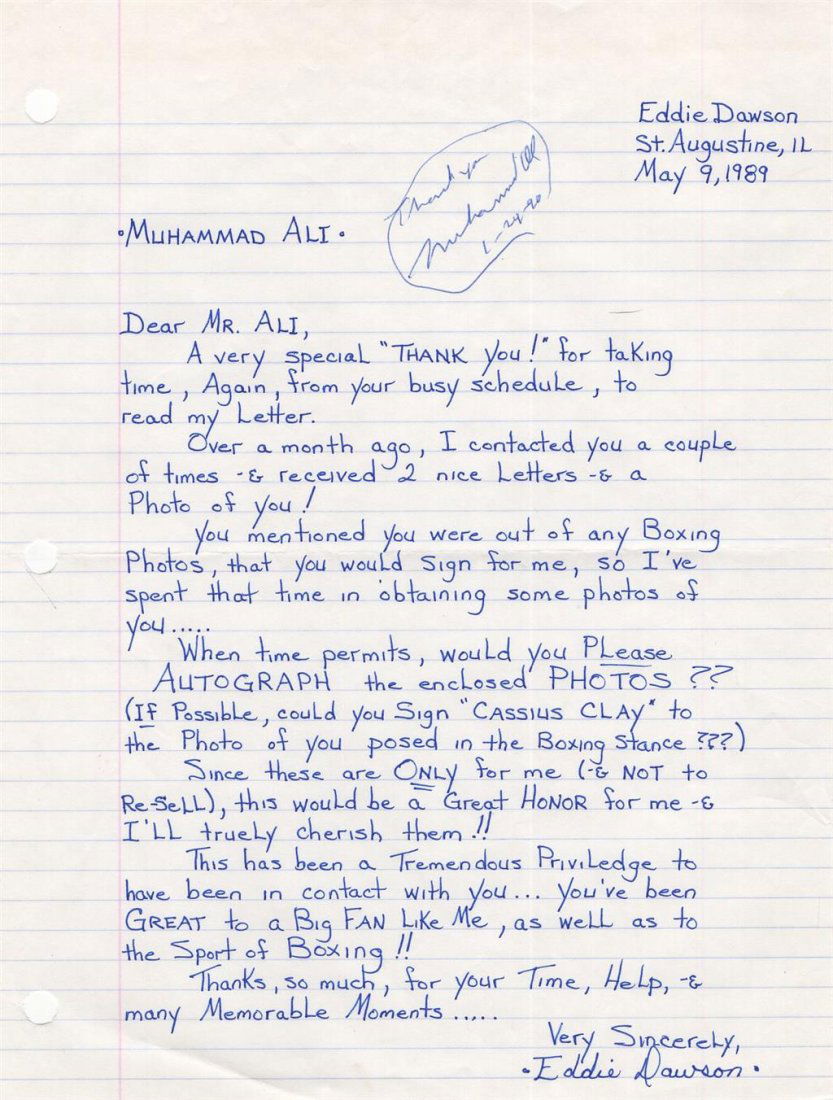 Eddie Dawson
St. Augustine, IL
May 9, 1989
Thank you
Muhammad Ali
1-24-90
•MUHAMMAD ALI•
Dear MR. ALI,
A very special "THANK you!" for taking
time, Again, from your busy schedule, to
read my Letter.
Over a month ago, I contacted you a couple
of times -& received 2 nice Letters -& a
Photo of you!
You mentioned you were out of any Boxing
Photos, that you would sign for me, so I've
spent that time in obtaining some photos of
you.....
When time permits, would you PLease
AUTOGRAPH the enclosed PHOTOS ??
(If Possible, could you Sign "CASSIUS CLAY" to
the Photo of you posed in the Boxing Stance ???)
Since these are ONLY for me (-& NOT to
Re-Sell), this would be a Great HONOR for me -&
I'LL truely cherish them!!
This has been a Tremendous Priviledge to
have been in contact with you... You've been
GREAT to a Big FAN Like Me, as well as to
the Sport of Boxing!!
Thanks, so much, for your Time, Help, -&
many Memorable Moments.....
Very Sincerely,
•Eddie Dawson•